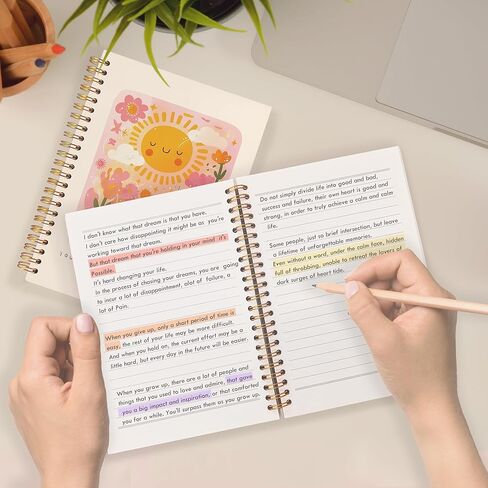 I don't know what that dream is that you have.
I don't care how disappointing it might be as you're
working toward that dream.
But that dream that you're holding in your mind it's
Possible.
It's hard changing your life.
In the process of chasing your dreams, you are going
to incur a lot of disappointment, alot of failure, a
lot of Pain.
When you give up, only a short period of time is
easy, the rest of your life may be more difficult.
And when you hold on, the current effort may be a
little hard, but every day in the future will be easier.
When you grow up, there are a lot of people and
things that you used to love and admire, that gave
you a big impact and inspiration, or that comforted
you for a while. You'll surpass them as you grow up.
Do not simply divide life into good and bad,
success and failure, their own heart is good and
strong, in order to truly achieve a calm and calm
life.
Some people, just so brief intersection, but leave
a lifetime of unforgettable memories.
Even without a word, under the calm face, hidden
full of throbbing, unable to retreat the layers of
dark surges of heart tide.